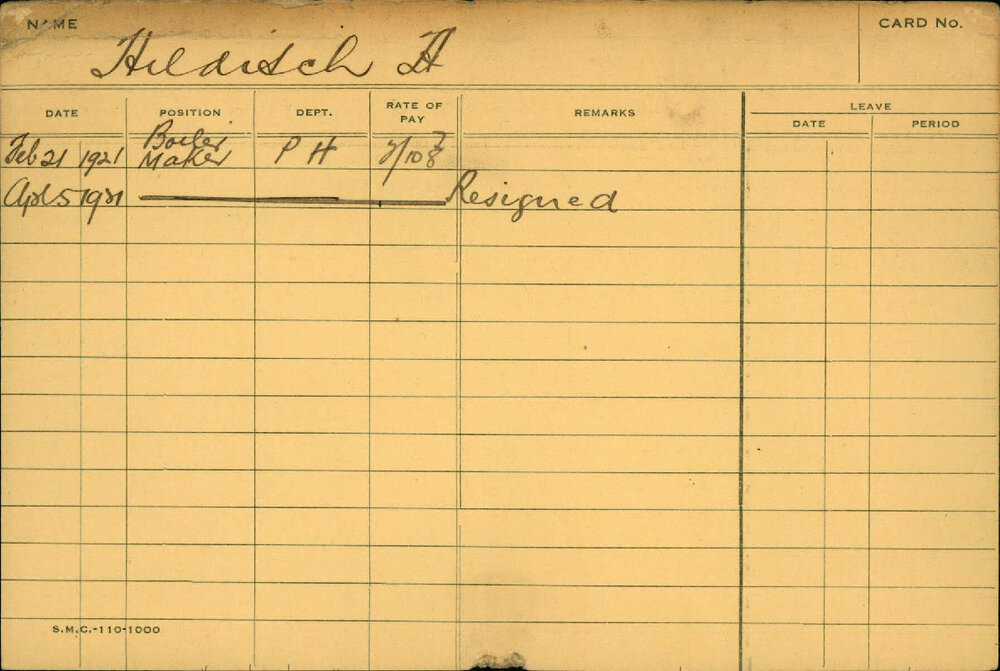 NAME CARD No.
Hildisch H
DATE POSITION DEPT. RATE OF PAY REMARKS LEAVE
DATE PERIOD
Feb 21 1921 Boiler Maker P H
Apl 5 1921 Resigned
S.M.C.-110-1000